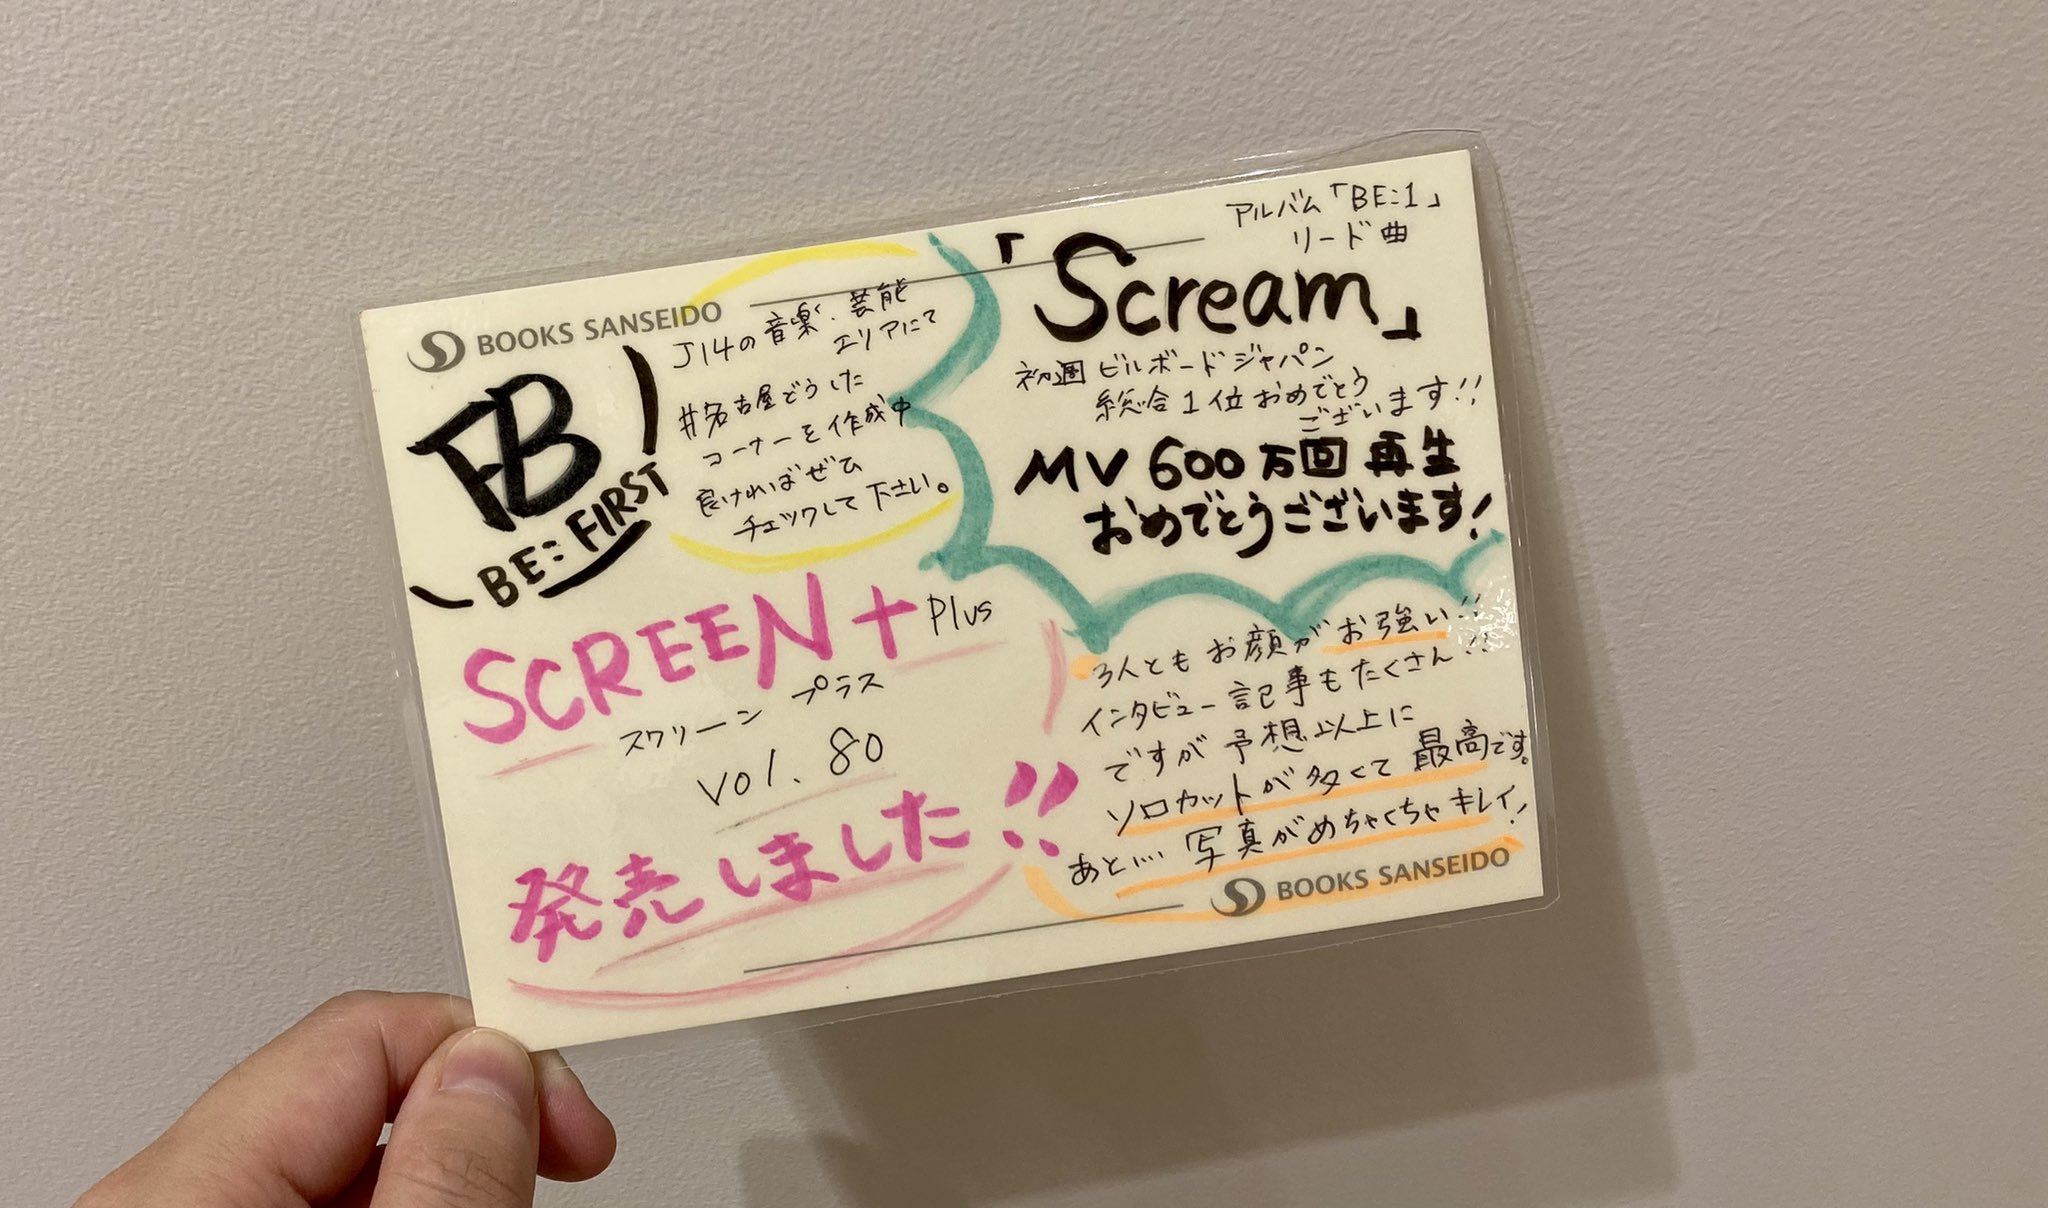 BOOKS SANSEIDO
BE:FIRST
J14の音楽、芸能
エリアにて
#名古屋どうした
コーナーを作成中
良ければぜひ
チェックして下さい。
アルバム「BE:1」
リード曲
「Scream」
初週ビルボードジャパン
総合1位おめでとう
ございます!!
MV 600万回再生
おめでとうございます!
SCREEN+ Plus
スクリーン プラス
vol. 80
発売しました!!
3人ともお顔がお強い!!
インタビュー記事もたくさん!!
ですが予想以上に
ソロカットが多くて最高です。
あと…. 写真がめちゃくちゃキレイ!
BOOKS SANSEIDO